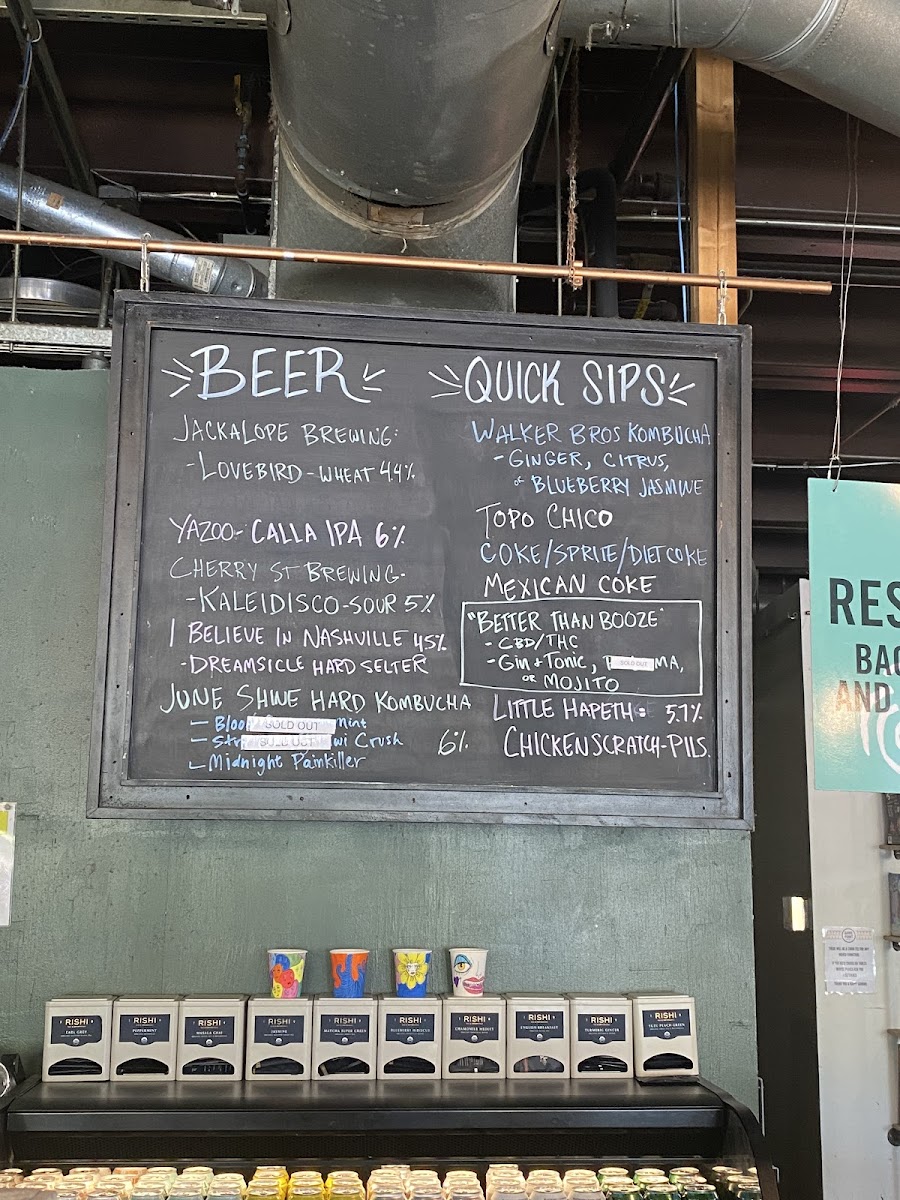 BEER
JACKALOPE BREWING:
-LOVEBIRD-WHEAT 4.4%
YAZOO- CALLA IPA 6%
CHERRY ST BREWING-
-KALEIDISCO-SOUR 5%
I BELIEVE IN NASHVILLE 4.5%
-DREAMSICLE HARD SELTER
JUNE SHINE HARD KOMBUCHA
- SOLD OUT Mint
- SOLD OUT Crush
- Midnight Painkiller
6%
QUICK SIPS
WALKER BROS KOMBUCHA
-GINGER, CITRUS,
or BLUEBERRY JASMINE
TOPO CHICO
COKE/SPRITE/DIET COKE
MEXICAN COKE
"BETTER THAN BOOZE"
- CBD/THC
- Gin + Tonic, SOLD OUT
OR MOJITO
LITTLE HAPETH: 5.7%
CHICKENSCRATCH-PILS.
RES
BAC
AND
RISHI
EARL GREY
RISHI
PEPPERMINT
RISHI
MASALA CHAI
RISHI
JASMINE
RISHI
MATCHA SUPER GREEN
RISHI
BLUEBERRY HIBISCUS
RISHI
CHAMOMILE MEDLEY
RISHI
ENGLISH BREAKFAST
RISHI
TURMERIC GINGER
RISHI
PEACH GREEN